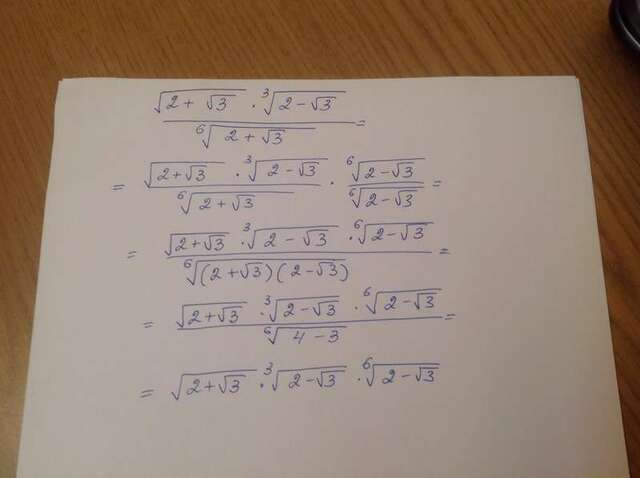 \frac{\sqrt{2+\sqrt{3}} \cdot \sqrt[3]{2-\sqrt{3}}}{\sqrt[6]{2+\sqrt{3}}} =
= \frac{\sqrt{2+\sqrt{3}} \cdot \sqrt[3]{2-\sqrt{3}}}{\sqrt[6]{2+\sqrt{3}}} \cdot \frac{\sqrt[6]{2-\sqrt{3}}}{\sqrt[6]{2-\sqrt{3}}} =
= \frac{\sqrt{2+\sqrt{3}} \cdot \sqrt[3]{2-\sqrt{3}} \cdot \sqrt[6]{2-\sqrt{3}}}{\sqrt[6]{(2+\sqrt{3})(2-\sqrt{3})}} =
= \frac{\sqrt{2+\sqrt{3}} \cdot \sqrt[3]{2-\sqrt{3}} \cdot \sqrt[6]{2-\sqrt{3}}}{\sqrt[6]{4-3}} =
= \sqrt{2+\sqrt{3}} \cdot \sqrt[3]{2-\sqrt{3}} \cdot \sqrt[6]{2-\sqrt{3}}